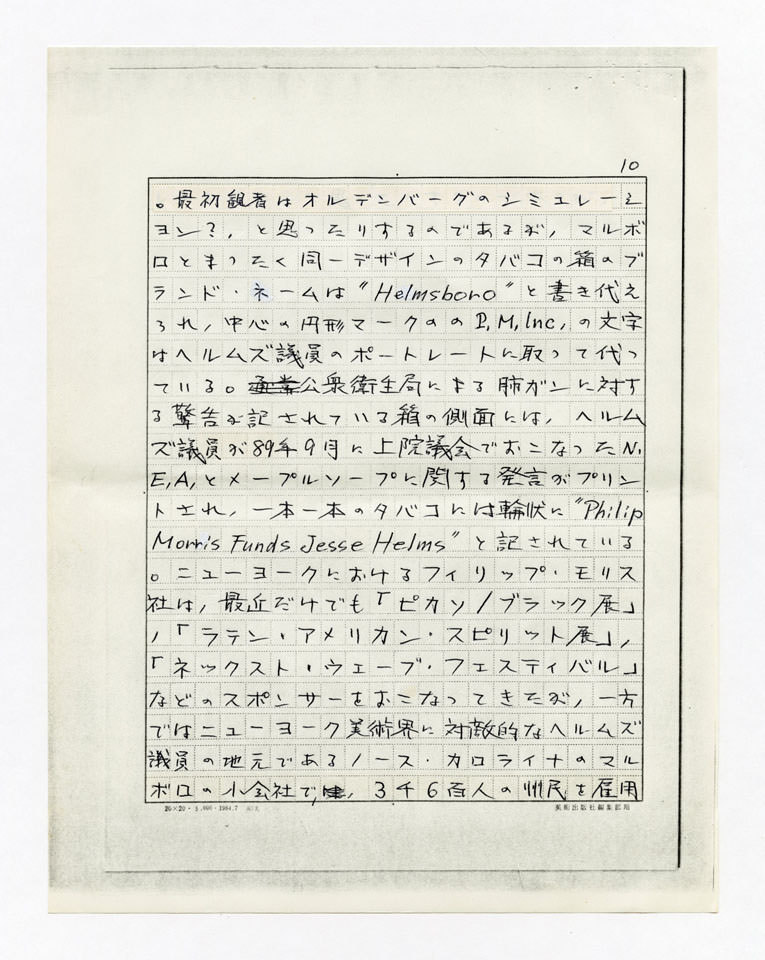 10
。最初観者はオルデンバーグのシミュレーシ
ョン?,と思ったりするのであるが,マルボ
ロとまったく同一デザインのタバコの箱のブ
ランド・ネームは"Helmsboro"と書き代え
られ,中心の円形マークのの P,M,Inc,の文字
はヘルムズ議員のポートレートに取って代っ
ている。公衆衛生局による肺ガンに対す
る警告が記されている箱の側面には,ヘルム
ズ議員が89年9月に上院議会でおこなったN.
E,A,とメープルソープに関する発言がプリン
トされ,一本一本のタバコには輪状に"Philip
Morris Funds Jesse Helms"と記されている
。ニューヨークにおけるフィリップ・モリス
社は,最近だけでも「ピカソ/ブラック展」
,「ラテン・アメリカン・スピリット展」,
「ネックスト・ウェーブ・フェスティバル」
などのスポンサーをおこなってきたが,一方
ではニューヨーク美術界に対敵的なヘルムズ
議員の地元であるノース・カロライナのマル
ボロの小会社で,3千6百人の州民を雇用
20×20・5,000・1984.7
美術出版社編集部用